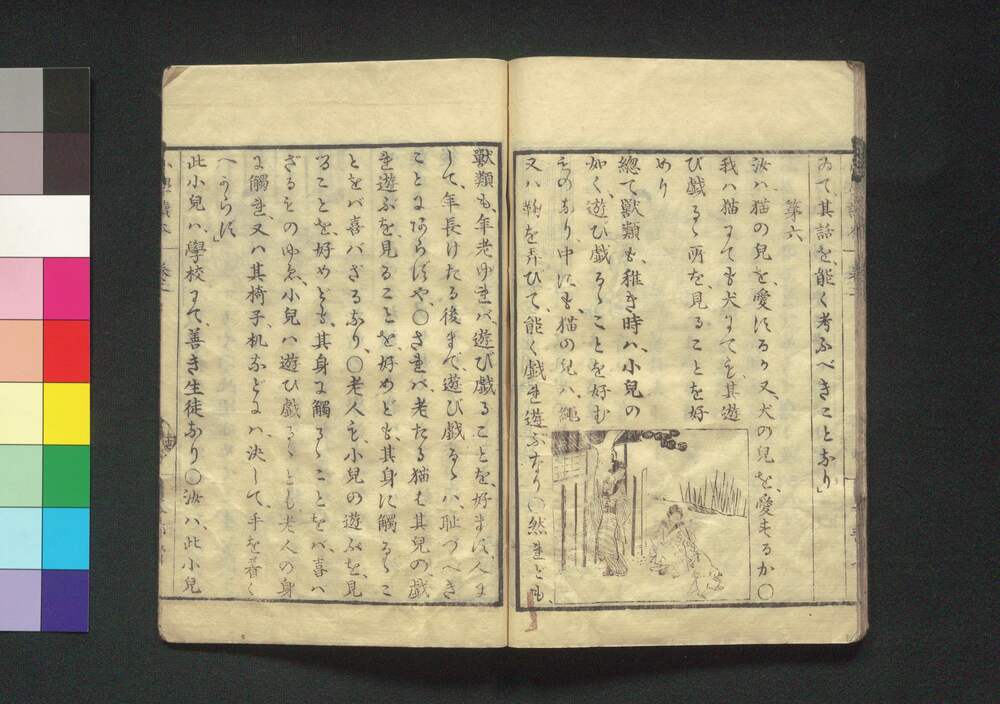 ゐて、其話を、能く考ふべきことなり」
第六
汝ハ、猫の兒を、愛するか、又、犬の兒を、愛するか、〇
我ハ、猫にても、犬にても、其遊
び戯るゝ所を、見ることを、好
めり
總て、獸類も、稚き時ハ、小兒の
如く、遊び戯るゝことを、好む
ものなり、中にも、猫の兒ハ、繩
又ハ、鞠を弄びて、能く戯れ遊ぶなり、〇然れども、
獸類も、年老ゆれバ、遊び戯るゝことを、好まず、人に
して、年長けたる後まで、遊び戯るゝハ、耻づべき
ことにあらずや、〇されバ、老たる猫も、其兒の戯
れ遊ぶを、見ることを、好めども、其身に觸るゝこ
とをバ、喜バざるなり、〇老人も、小兒の遊ぶを、見
ることを、好めども、其身に觸るゝことをバ、喜ハ
ざるものゆゑ、小兒ハ、遊ひ戯るゝとも、老人の身
に觸れ、又ハ、其椅子、机などにハ、決して、手を着く
べからず」
此小兒ハ、學校にて、善き生徒なり、〇汝ハ、此小兒